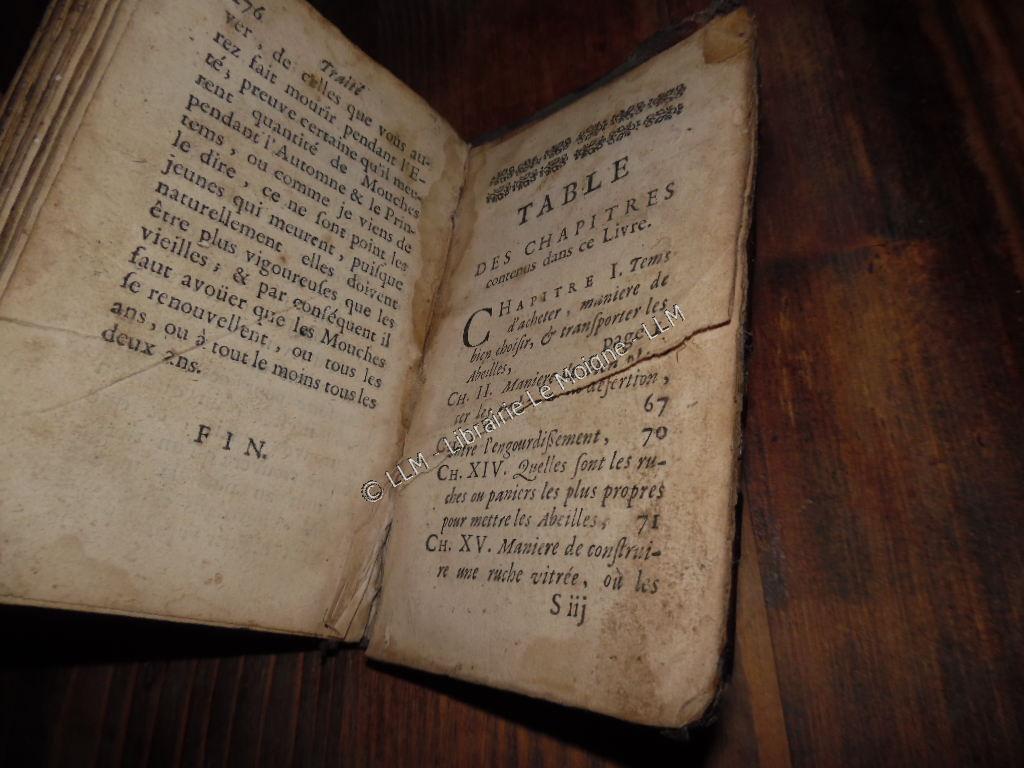 276
Traité
ver, de celles que vous au-
rez fait mourir pendant l'E-
té; preuve certaine qu'il meu-
rent quantité de Mouches
pendant l'Automne & le Prin-
tems, ou comme je viens de
le dire, ce ne ſont point les
jeunes qui meurent, puiſque
naturellement elles doivent
être plus vigoureuſes que les
vieilles; & par conſéquent il
faut avoüer que les Mouches
ſe renouvellent, ou tous les
ans, ou à tout le moins tous les
deux ans.
FIN.
TABLE
DES CHAPITRES
contenus dans ce Livre.
CHAPITRE I. Tems
d'acheter, maniere de
bien choiſir, & tranſporter les
Abeilles, page
CH. II. Maniere
ſer les deſertion,
67
l'engourdiſſement, 70
CH. XIV. Quelles ſont les ru-
ches ou paniers les plus propres
pour mettre les Abeilles, 71
CH. XV. Maniere de conſtrui-
re une ruche vitrée, où les
S iij
© LLM - Librairie Le Moigne- LLM